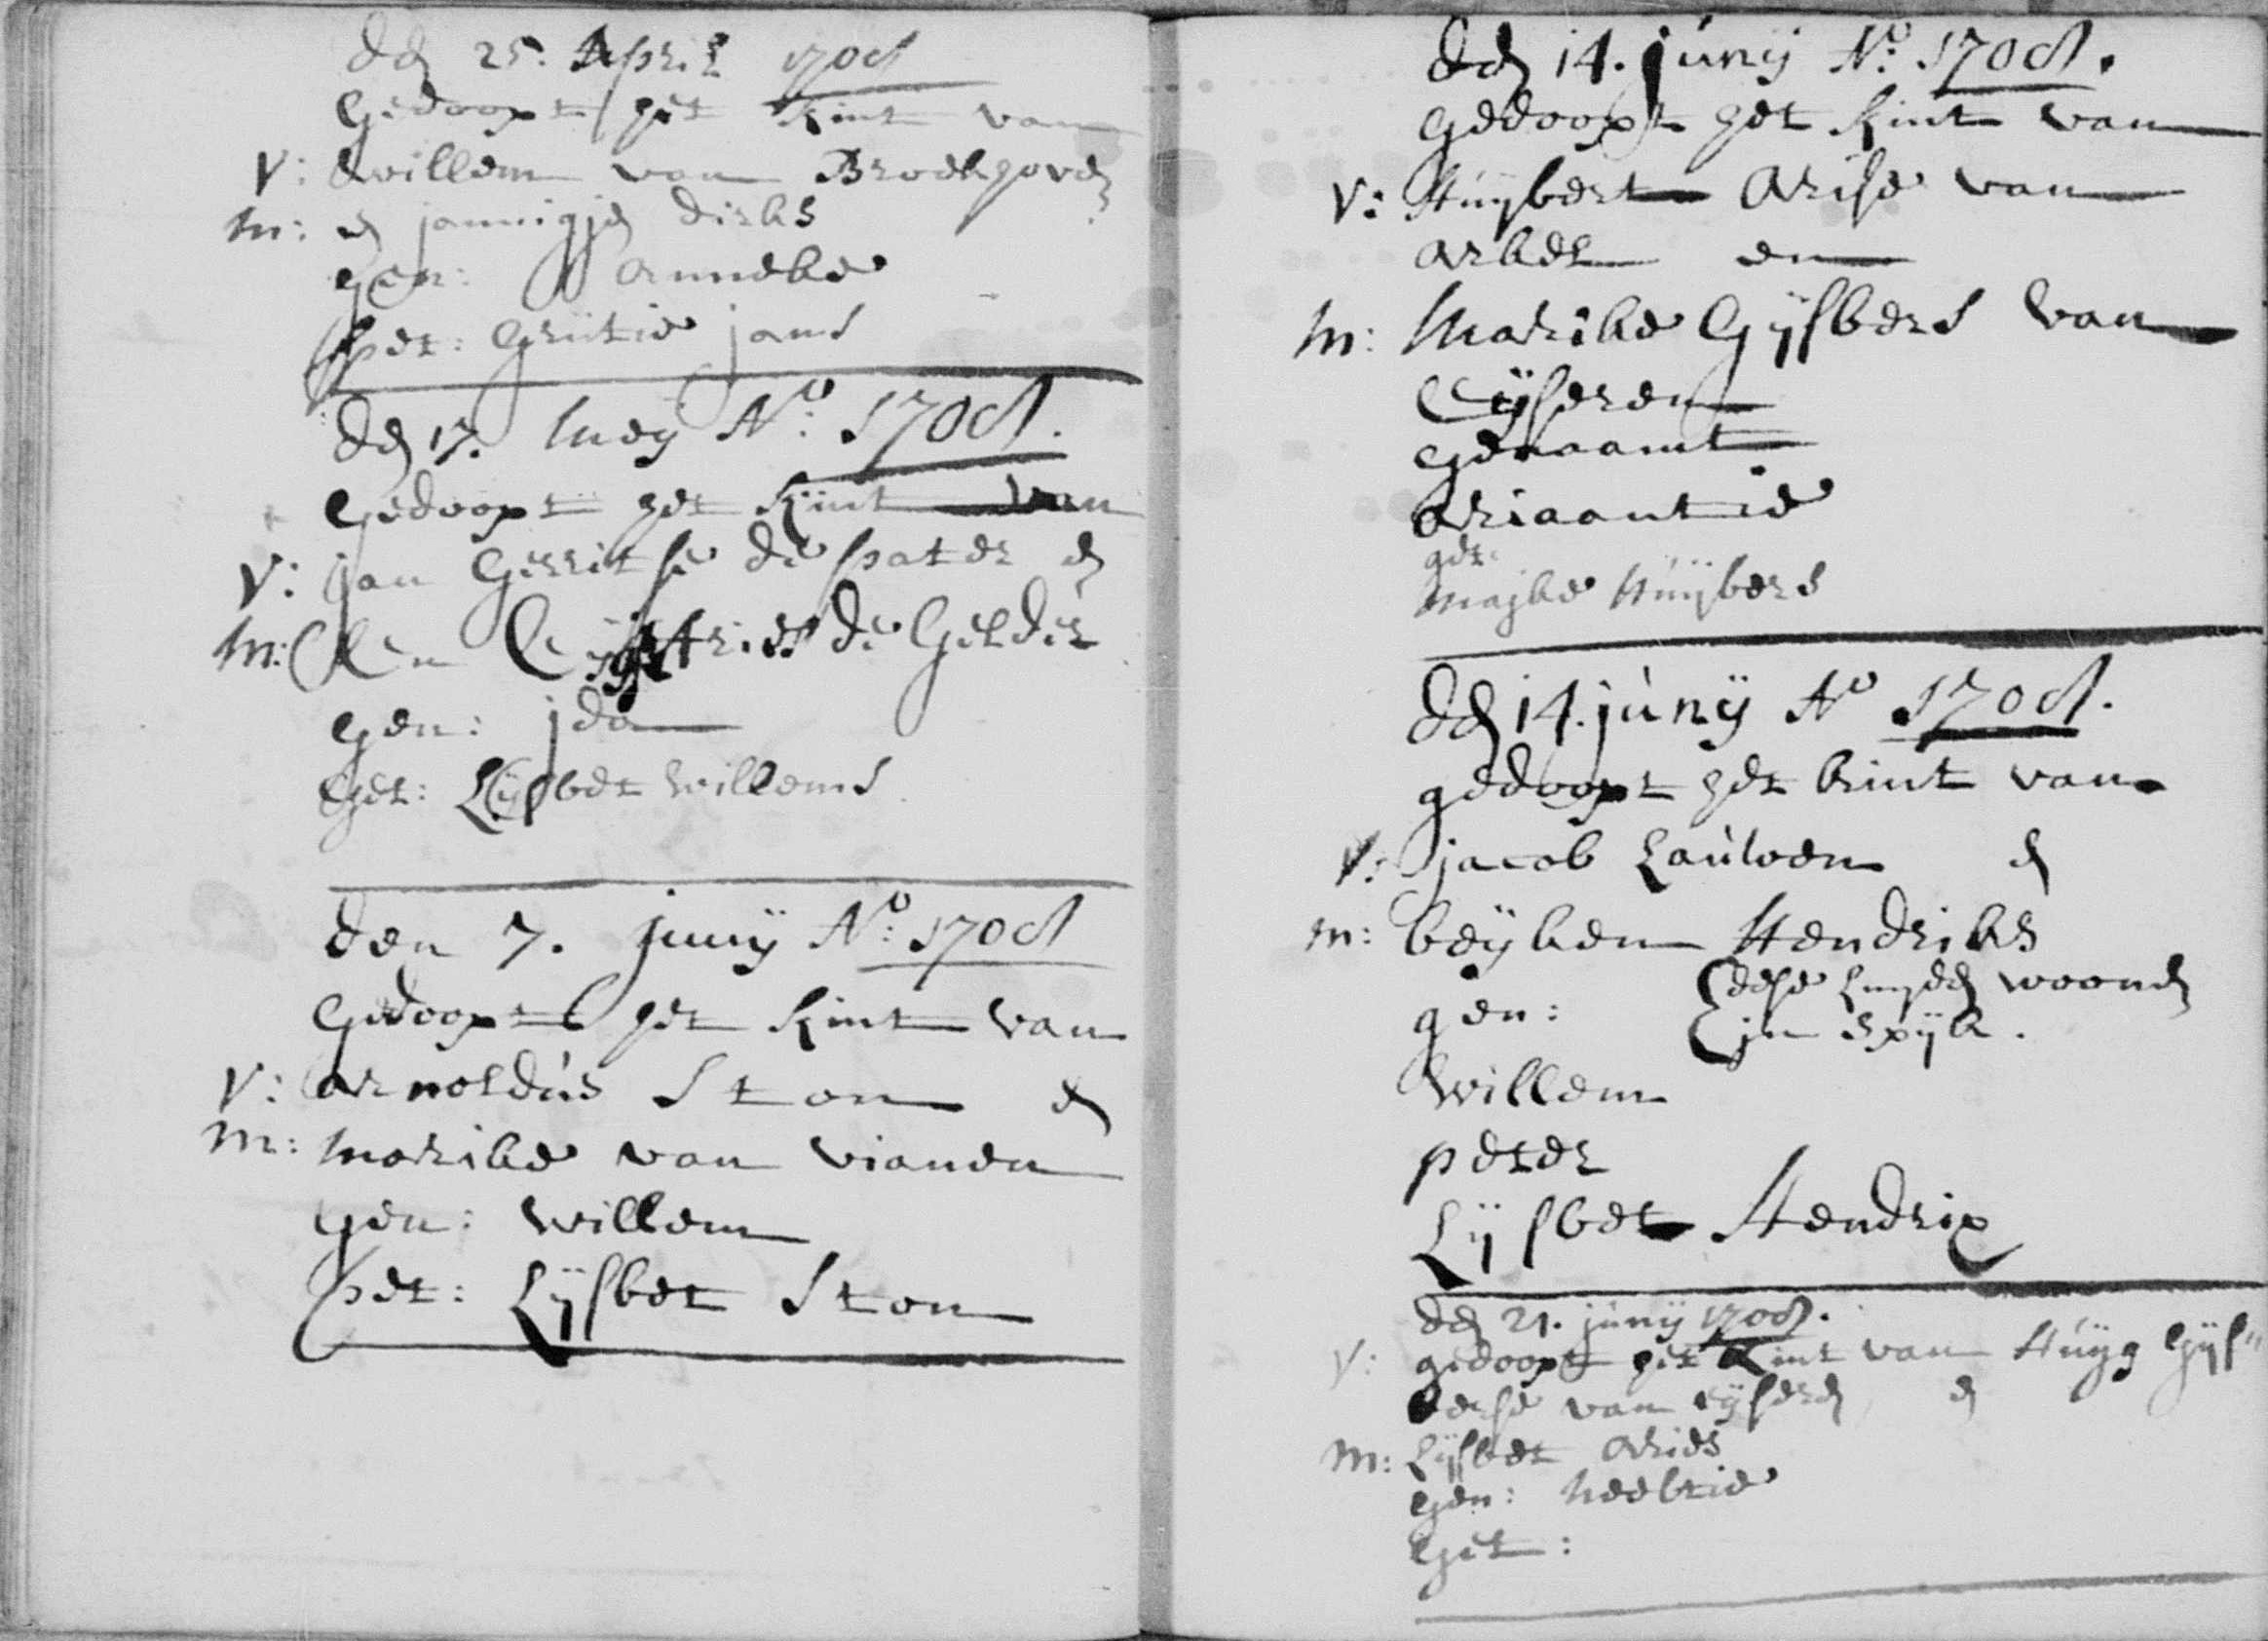 dē 25. April 1708
Gedoopt het Kint van
V: Willem van Broekhovē
M: ē jannigjē dirks
gen: Anneke
pet: Grietie jans
dē 17. Meij Aº: 1708.
Gedoopt het Kint van
V: jan Gerritse de pater ē
M: de Gelder
gen: jda
Get: Lijsbet Willems
den 7. junij Aº: 1708
Gedoopt het Kint van
V: Arnoldús Ston ē
M: Marike van vianen
gen: Willem
pet: Lijsbet Ston
dē 14. júnij Aº: 1708.
gedoopt het Kint van
V: Huijbert Arise van
arkel en
M: Marike Gijsbers van
Eijseren
genaamt
Ariaantie
get:
Majke Huijbers
dē 14. júnij Aº 1708.
gedoopt het kint van
V: jacob Laúwen ē
M: beijken Hendriks
gen: dese luydē woonē
jn Spijk.
Willem
peter
Lijsbet Hendrix
dē 21. júnij 1708.
V: gedoopt het Kint van Húijg Gijs"
berse van eijserē ē
M: Lijsbet Aries
gen: Neeltie
Get: